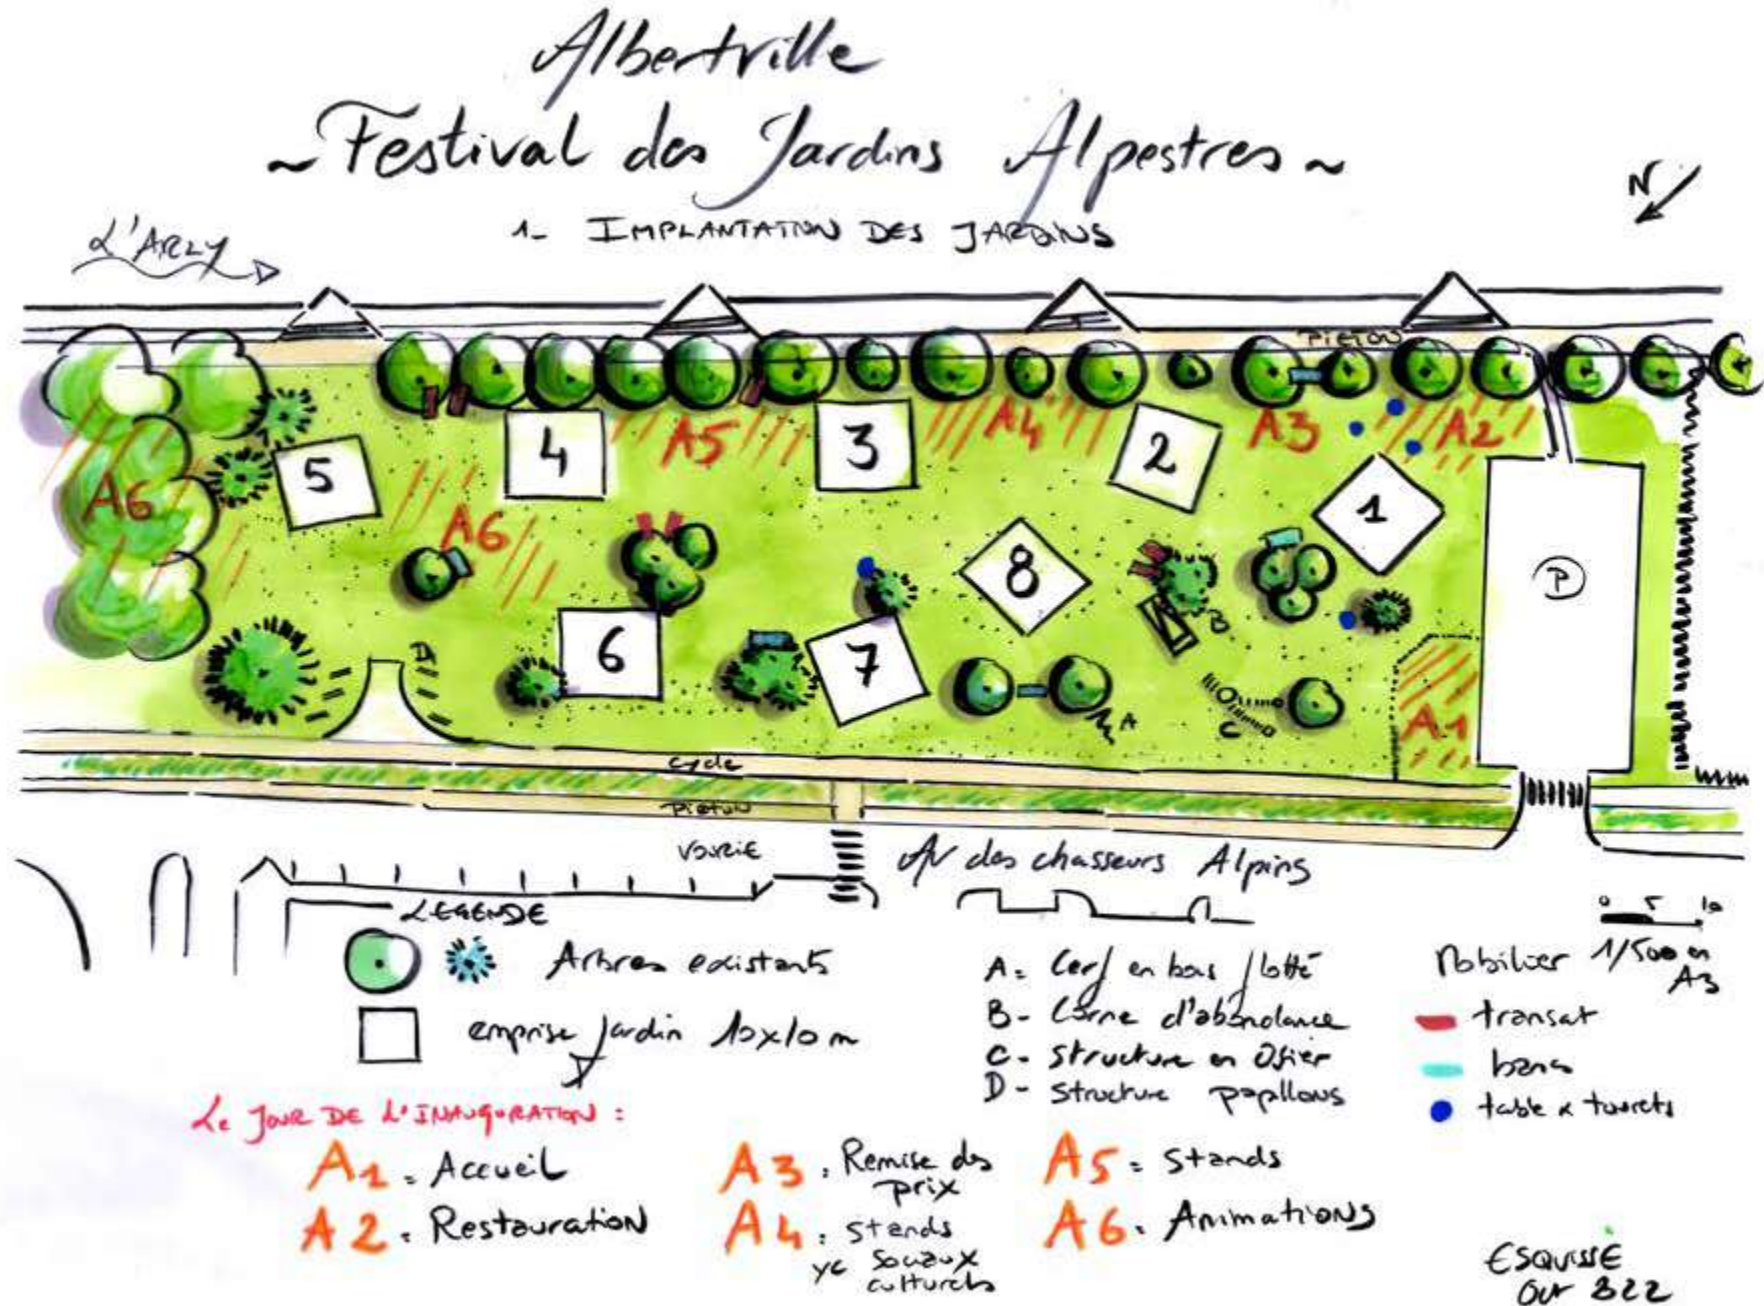 Albertville
~ Festival des Jardins Alpestres ~
1- IMPLANTATION DES JARDINS
N
L'ARLY
PIETON
A3
A2
A4
A5
4
3
2
5
1
A6
A6
8
P
6
7
B
D
A
C
A1
cycle
PIETON
VOIRIE
AV des chasseurs Alpins
LEGENDE
Arbres existants
emprise jardin 10x10m
A= Cerf en bois flotté
B- Corne d'abondance
C- Structure en Osier
D- Structure papillons
0 5 10
1/500 en A3
Mobilier
transat
bancs
table & tourets
Le JOUR DE L'INAUGURATION :
A1 = Accueil
A2 = Restauration
A3 : Remise des prix
A4 : Stands
socaux
culturels
A5 = Stands
A6 = Animations
ESQUISSE